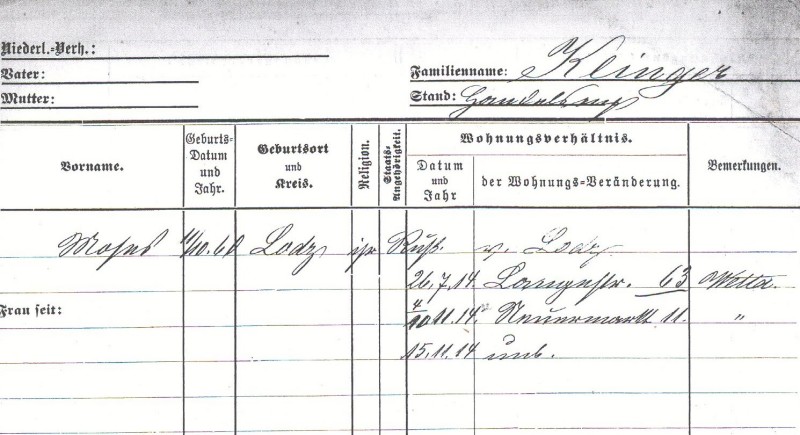 Niederl.-Verh.:
Vater:
Mutter:
Familienname: Klinger
Stand: Handelsm
Vorname.
Geburts-
Datum
und
Jahr.
Geburtsort
und
Kreis.
Religion.
Staats-
Angehörigkeit.
Wohnungsverhältnis.
Datum
und
Jahr
der Wohnungs-Veränderung.
Bemerkungen.
Moses 11/10.68 Lodz isr Russ. v. Lodz
26.7.14. Langestr. 63
Frau seit:
4/10 11.14. Neuermarkt 11. "
15.11.14 unb.